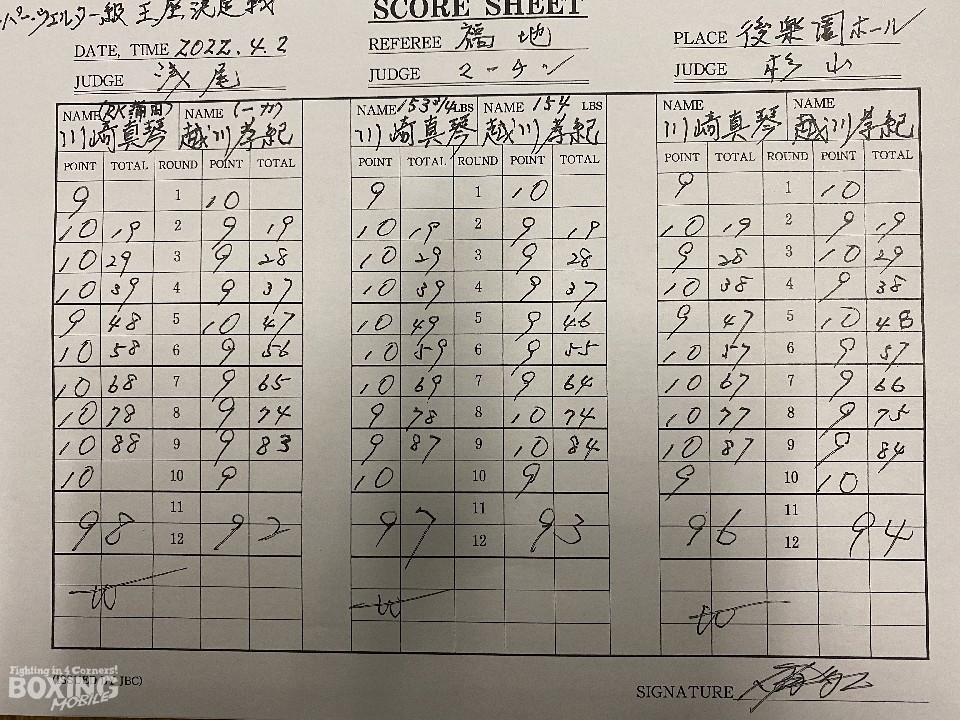 ーパーウェルター級 王座決定戦
SCORE SHEET
DATE, TIME 2022.4.2
JUDGE 浅尾
REFEREE 福地
JUDGE マーチン
PLACE 後楽園ホール
JUDGE 杉山
NAME (RK蒲田) NAME (一力)
川崎真琴 越川孝紀
POINT TOTAL ROUND POINT TOTAL
9 1 10
10 19 2 9 19
10 29 3 9 28
10 39 4 9 37
9 48 5 10 47
10 58 6 9 56
10 68 7 9 65
10 78 8 9 74
10 88 9 9 83
10 10 9
11
98 92
12
W
NAME 153 3/4 LBS NAME 154 LBS
川崎真琴 越川孝紀
POINT TOTAL ROUND POINT TOTAL
9 1 10
10 19 2 9 19
10 29 3 9 28
10 39 4 9 37
10 49 5 9 46
10 59 6 9 55
10 69 7 9 64
9 78 8 10 74
9 87 9 10 84
10 10 9
11
97 93
12
W
NAME NAME
川崎真琴 越川孝紀
POINT TOTAL ROUND POINT TOTAL
9 1 10
10 19 2 9 19
9 28 3 10 29
10 38 4 9 38
9 47 5 10 48
10 57 6 9 57
10 67 7 9 66
10 77 8 9 75
10 87 9 9 84
9 10 10
11
96 94
12
W
JBC)
SIGNATURE
Fighting in 4 Corners!
BOXING
MOBILE